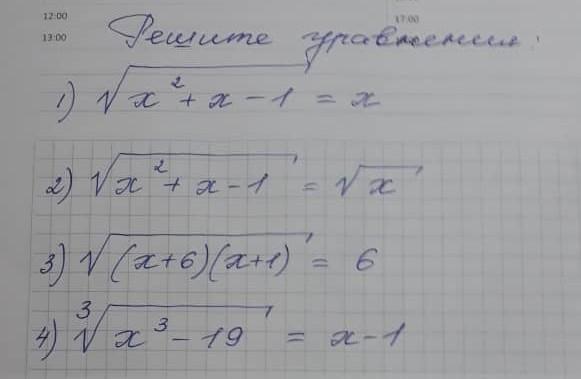 12:00
17:00
13:00
Решите уравнения:
1) √(x² + x - 1) = x
2) √(x² + x - 1) = √x
3) √((x+6)(x+1)) = 6
4) ∛(x³ - 19) = x - 1